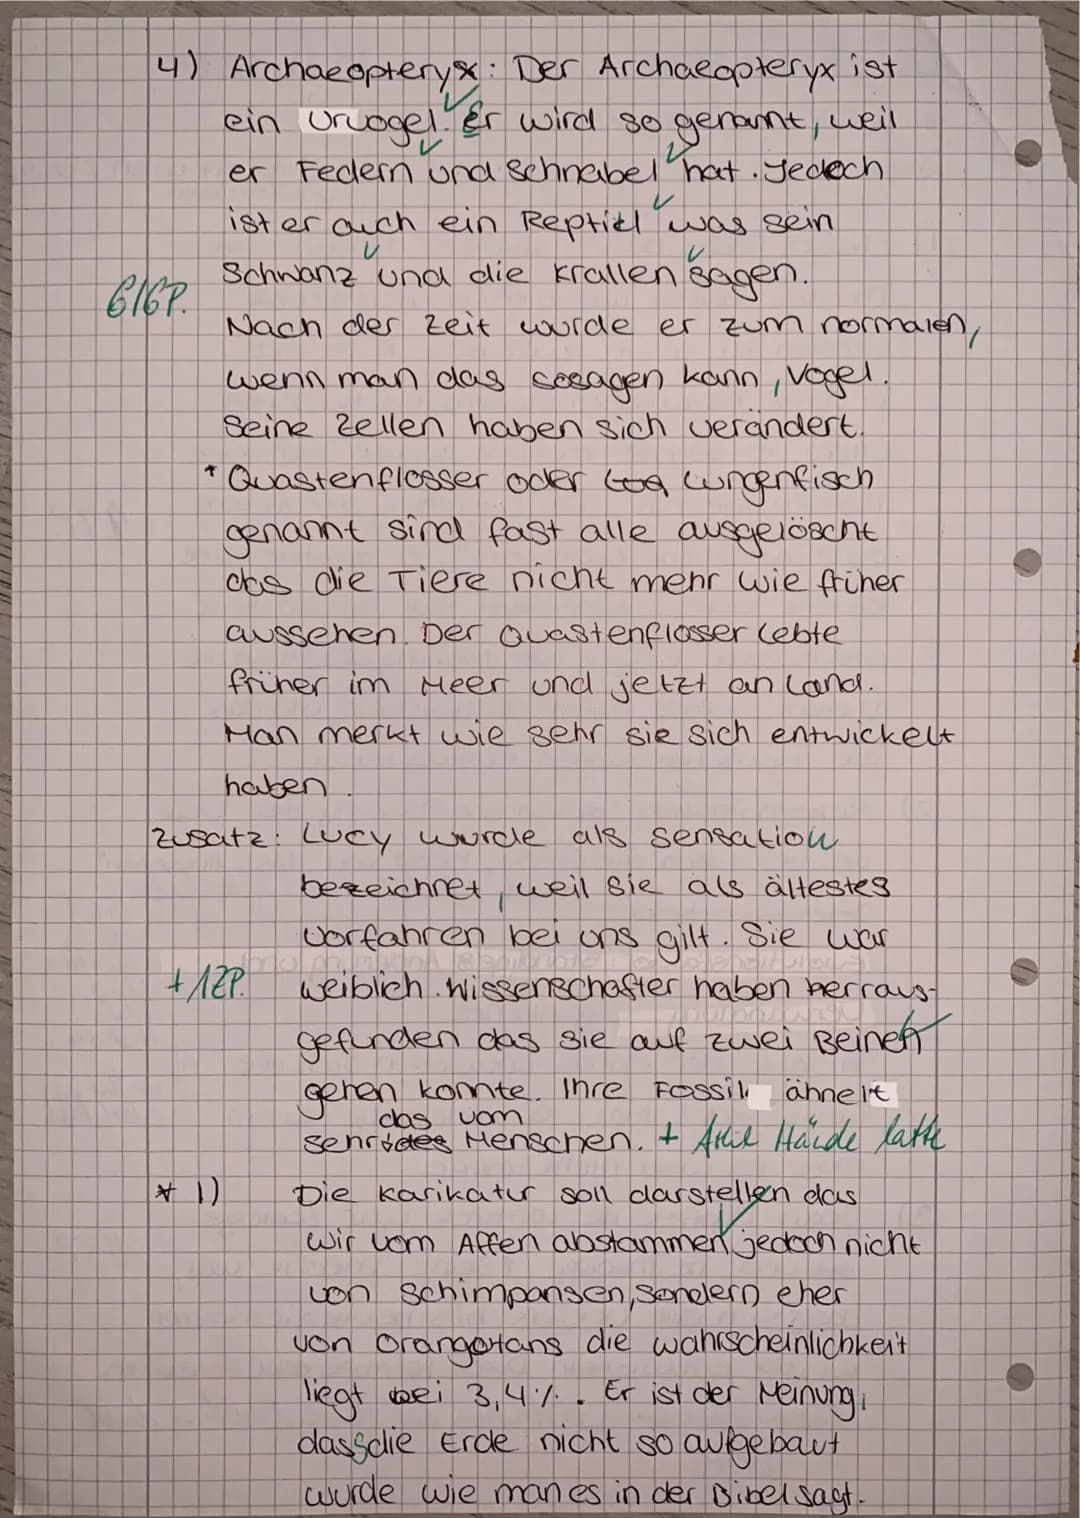 4) Archaeopteryx: Der Archaeopteryx ist
ein Urvogel. Er wird so genannt, weil
er Federn und Schnabel hat. Jedoch
ist er auch ein Reptiel was sein
Schwanz und die Krallen sagen.
6/6P.
Nach der Zeit wurde er zum normalen,
wenn man das sosagen kann, Vogel.
Seine Zellen haben sich verändert.
* Quastenflosser oder Lungenfisch
genannt sind fast alle ausgelöscht
das die Tiere nicht mehr wie früher
aussehen. Der Quastenflosser lebte
früher im Meer und jetzt an Land.
Man merkt wie sehr sie sich entwickelt
haben.
Zusatz: Lucy wurde als Sensation
bezeichnet, weil sie als ältestes
Vorfahren bei uns gilt. Sie war
+1ZP. weiblich. Wissenschafter haben herraus-
gefunden das sie auf zwei Beinen
gehen konnte. Ihre Fossil ähnelt
das vom
sehr des Menschen. + Hände hatte
* 1) Die Karikatur soll darstellen das
wir vom Affen abstammen jedoch nicht
von Schimpansen, sondern eher
von Orangotans die wahrscheinlichkeit
liegt bei 3,4%. Er ist der Meinung,
dass die Erde nicht so aufgebaut
wurde wie man es in der Bibel sagt.